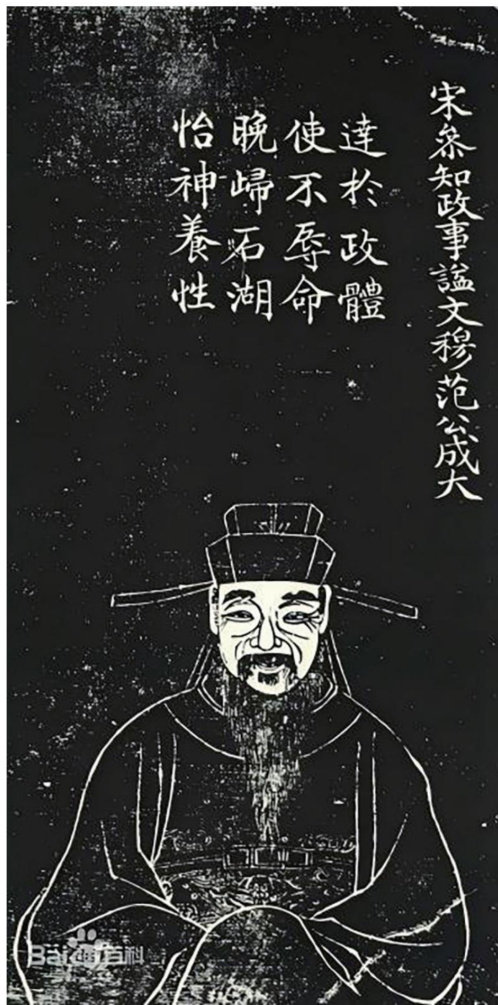 宋叅知政事謚文穆范公成大
達於政體
使不辱命
晚歸石湖
怡神養性
Baidu百科